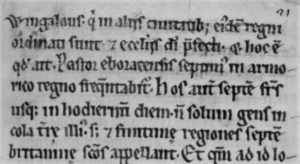 21
Wingalous. q̃ in aliis ciuitatib; eiꝰdē regni
ordinati sunt. & eccłijs dī p̄fecti. & hoc ē
qđ aiт. Pastor eboracensis septim' in armo
rico regno freq̄ntabit̃. hos aut̄ septē fr̄s
usq; in hodiernū diem. ñ solum gens in
cola & finitime regiones septē
britannie sc̄os appellant. Et qm̄ ad id lo